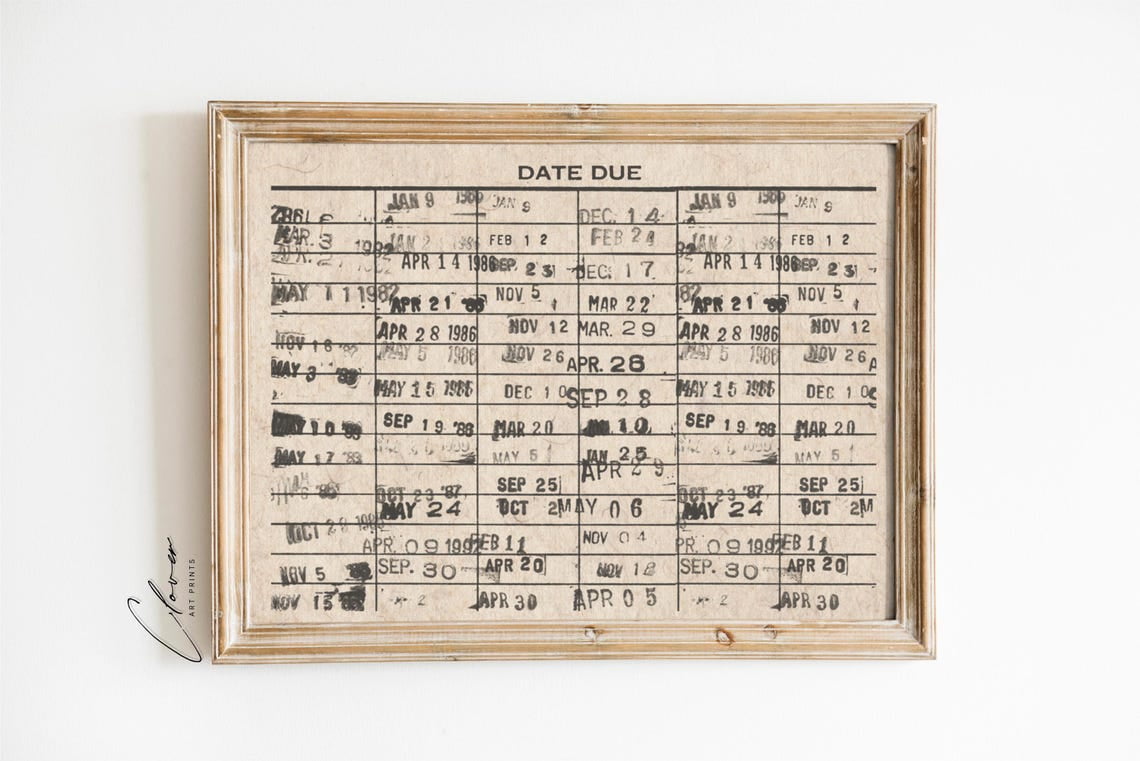 DATE DUE
JAN 9 1986 JAN 9 DEC. 14 JAN 9 1986 JAN 9
MAR. 3 FEB 12 FEB 24 FEB 12
APR 14 1986 SEP. 23 DEC. 17 APR 14 1986 SEP. 23
MAY 11 1982 APR 21 '86 NOV 5 MAR 22 APR 21 '86 NOV 5
NOV 16 '82 APR 28 1986 NOV 12 MAR. 29 APR 28 1986 NOV 12
MAY 3 MAY 5 1986 NOV 26 APR. 26 MAY 5 1986 NOV 26
MAY 15 1986 DEC 10 SEP 28 MAY 15 1986 DEC 10
MAY 10 '83 SEP 19 '86 MAR 20 JAN 10 SEP 19 '86 MAR 20
MAY 17 '83 MAY 5 JAN 25 MAY 5
APR 29
OCT 23 '87 SEP 25 OCT 23 '87 SEP 25
MAY 24 OCT 2 MAY 06 MAY 24 OCT 2
OCT 28 1985 APR. 09 1992 FEB 11 NOV 04 PR. 09 1992 FEB 11
NOV 5 SEP. 30 APR 20 NOV 18 SEP. 30 APR 20
NOV 15 2 APR 30 APR 05 2 APR 30
Clover
ART PRINTS